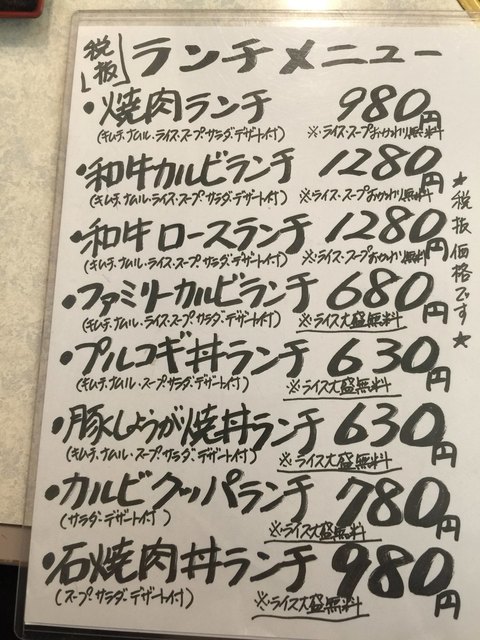 税抜 ランチメニュー
・焼肉ランチ 980円
(キムチ、ナムル・ライス・スープ・サラダ・デザート付) ※・ライス・スープおかわり無料
・和牛カルビランチ 1280円
(キムチ、ナムル・ライス・スープ・サラダ・デザート付) ※・ライス・スープおかわり無料
・和牛ロースランチ 1280円
(キムチ、ナムル・ライス・スープ・サラダ・デザート付) ※・ライス・スープおかわり無料
・ファミリーカルビランチ 680円
(キムチ、ナムル・ライス・スープ・サラダ・デザート付) ※・ライス大盛無料
・プルコギ丼ランチ 630円
(キムチ、ナムル・スープ・サラダ・デザート付) ※・ライス大盛無料
・豚しょうが焼丼ランチ 630円
(キムチ、ナムル・スープ・サラダ・デザート付) ※・ライス大盛無料
・カルビクッパランチ 780円
(サラダ・デザート付) ※・ライス大盛無料
・石焼肉丼ランチ 980円
(スープ・サラダ・デザート付) ※・ライス大盛無料
★税抜価格です★